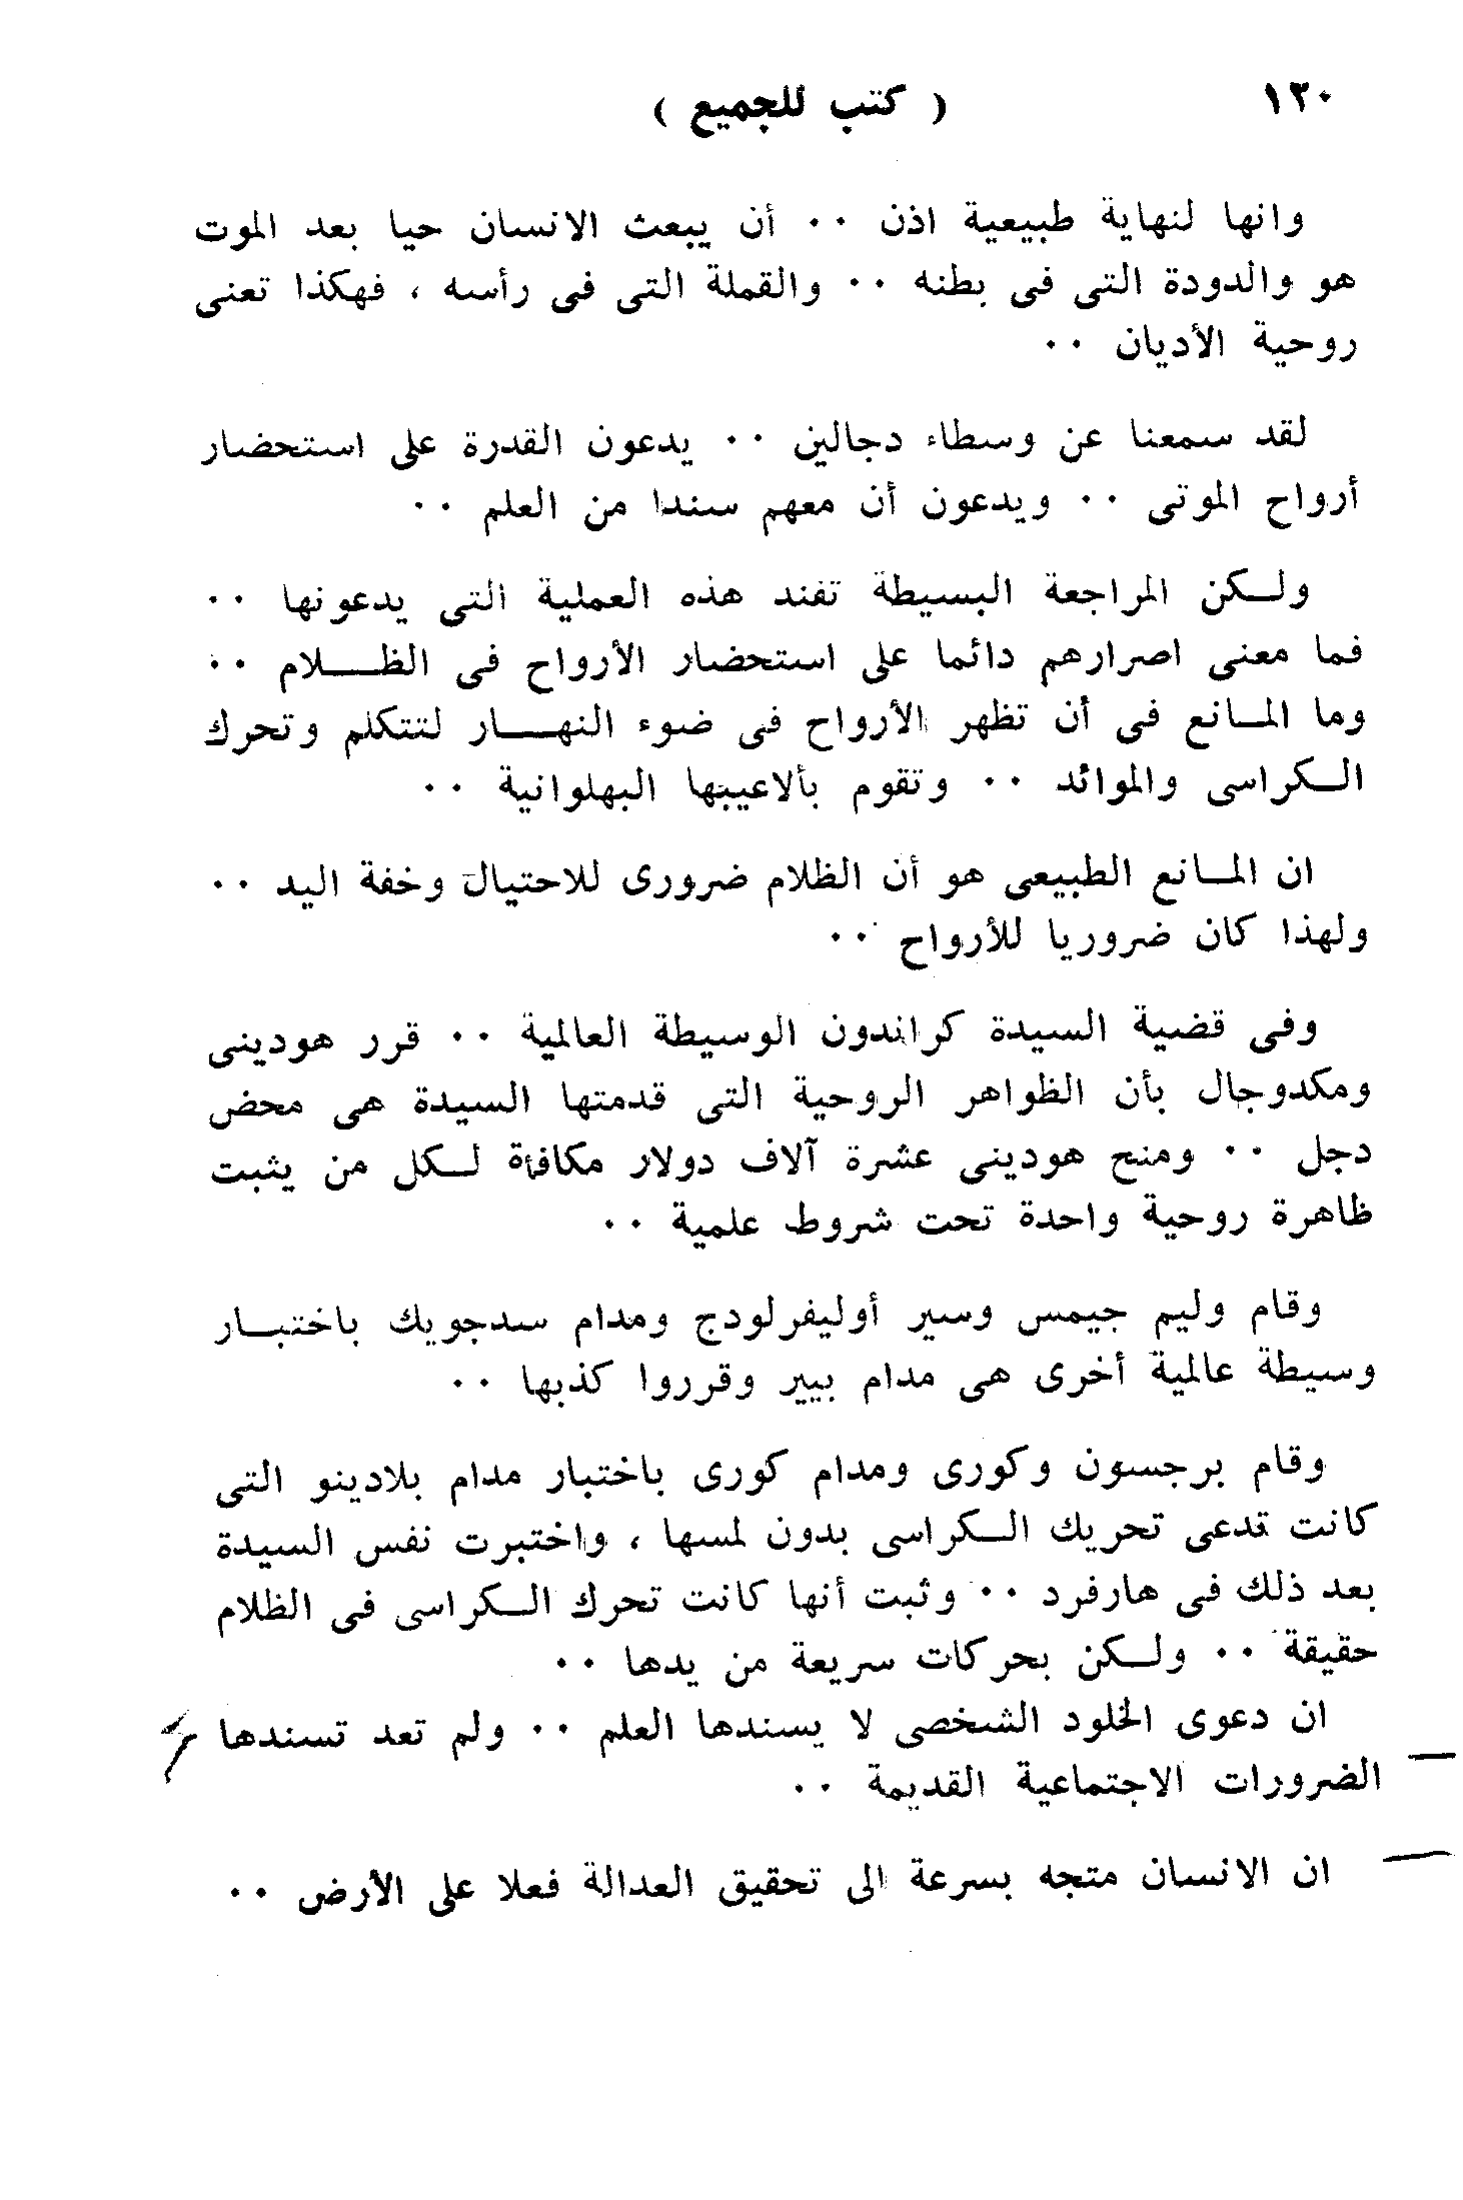 ١٣٠
( كتب للجميع )
وانها لنهاية طبيعية اذن ٠٠ أن يبعث الانسان حيا بعد الموت
هو والدودة التى فى بطنه ٠٠ والقملة التى فى رأسه ، فهكذا تعنى
روحية الأديان ٠٠
لقد سمعنا عن وسطاء دجالين ٠٠ يدعون القدرة على استحضار
أرواح الموتى ٠٠ ويدعون أن معهم سندا من العلم ٠٠
ولـكن المراجعة البسيطة تفند هذه العملية التى يدعونها ٠٠
فما معنى اصرارهم دائما على استحضار الأرواح فى الظـــلام ٠٠
وما المـانع فى أن تظهر الأرواح فى ضوء النهـــار لتتكلم وتحرك
الـكراسى والموائد ٠٠ وتقوم بألاعيبها البهلوانية ٠٠
ان المـانع الطبيعى هو أن الظلام ضرورى للاحتيال وخفة اليد ٠٠
ولهذا كان ضروريا للأرواح ٠٠
وفى قضية السيدة كراندون الوسيطة العالمية ٠٠ قرر هودينى
ومكدوجال بأن الظواهر الروحية التى قدمتها السيدة هى محض
دجل ٠٠ ومنح هودينى عشرة آلاف دولار مكافأة لـكل من يثبت
ظاهرة روحية واحدة تحت شروط علمية ٠٠
وقام وليم جيمس وسير أوليفرلودج ومدام سدجويك باختبـار
وسيطة عالمية أخرى هى مدام بيير وقرروا كذبها ٠٠
وقام برجسون وكورى ومدام كورى باختبار مدام بلادينو التى
كانت تدعى تحريك الـكراسى بدون لمسها ، واختبرت نفس السيدة
بعد ذلك فى هارفرد ٠٠ وثبت أنها كانت تحرك الـكراسى فى الظلام
حقيقة ٠٠ ولـكن بحركات سريعة من يدها ٠٠
ان دعوى الخلود الشخصى لا يسندها العلم ٠٠ ولم تعد تسندها
الضرورات الاجتماعية القديمة ٠٠
ان الانسان متجه بسرعة الى تحقيق العدالة فعلا على الأرض ٠٠